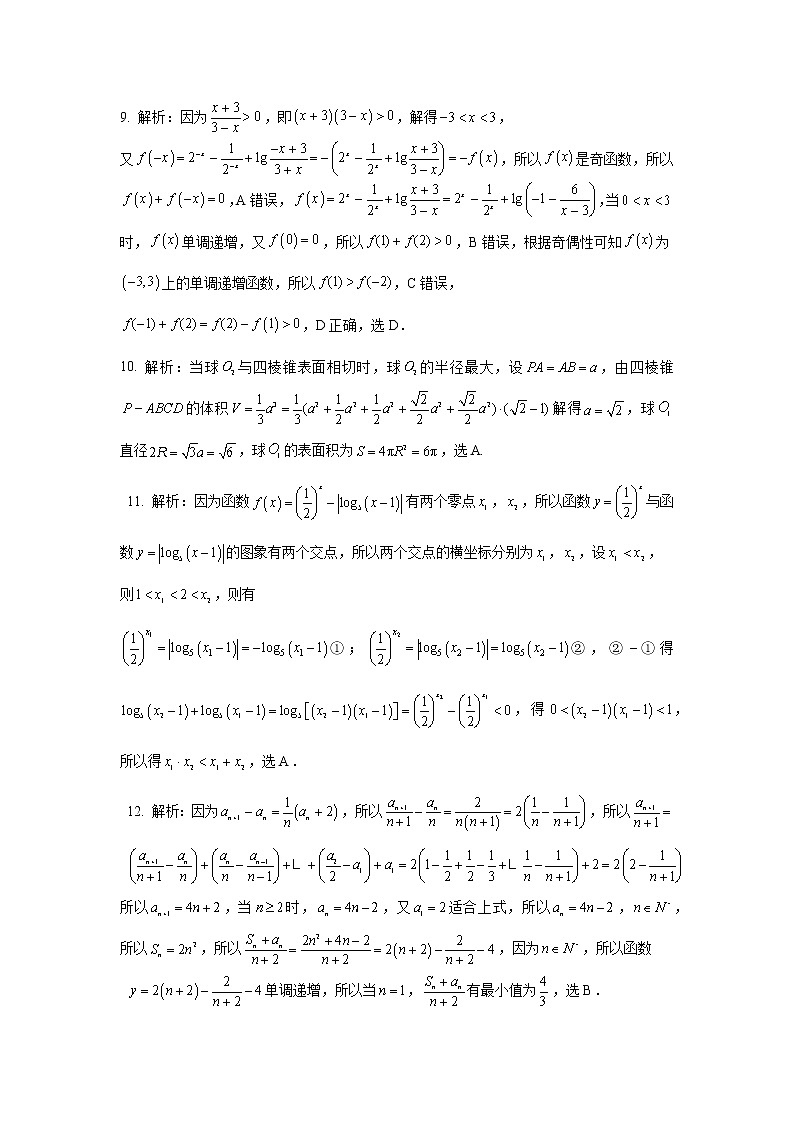 9. 解析：因为 $\frac{x+3}{3-x}>0$，即 $(x+3)(3-x)>0$，解得 $-3<x<3$，
又 $f(-x)=2^{-x}-\frac{1}{2^{-x}}+\lg\frac{-x+3}{3+x}=-\left(2^{x}-\frac{1}{2^{x}}+\lg\frac{x+3}{3-x}\right)=-f(x)$，所以 $f(x)$ 是奇函数，所以
$f(x)+f(-x)=0$，A 错误，$f(x)=2^{x}-\frac{1}{2^{x}}+\lg\frac{x+3}{3-x}=2^{x}-\frac{1}{2^{x}}+\lg\left(-1-\frac{6}{x-3}\right)$，当 $0<x<3$
时，$f(x)$ 单调递增，又 $f(0)=0$，所以 $f(1)+f(2)>0$，B 错误，根据奇偶性可知 $f(x)$ 为
$(-3,3)$ 上的单调递增函数，所以 $f(1)>f(-2)$，C 错误，
$f(-1)+f(2)=f(2)-f(1)>0$，D 正确，选 D．
10. 解析：当球 $O_2$ 与四棱锥表面相切时，球 $O_2$ 的半径最大，设 $PA=AB=a$，由四棱锥
$P-ABCD$ 的体积 $V=\frac{1}{3}a^3=\frac{1}{3}(a^2+\frac{1}{2}a^2+\frac{1}{2}a^2+\frac{\sqrt{2}}{2}a^2+\frac{\sqrt{2}}{2}a^2)\cdot(\sqrt{2}-1)$ 解得 $a=\sqrt{2}$，球 $O_1$
直径 $2R=\sqrt{3}a=\sqrt{6}$，球 $O_1$ 的表面积为 $S=4\pi R^2=6\pi$，选 A.
11. 解析：因为函数 $f(x)=\left(\frac{1}{2}\right)^{x}-\left|\log_5(x-1)\right|$ 有两个零点 $x_1$，$x_2$，所以函数 $y=\left(\frac{1}{2}\right)^{x}$ 与函
数 $y=\left|\log_5(x-1)\right|$ 的图象有两个交点，所以两个交点的横坐标分别为 $x_1$，$x_2$，设 $x_1<x_2$，
则 $1<x_1<2<x_2$，则有
$\left(\frac{1}{2}\right)^{x_1}=\left|\log_5(x_1-1)\right|=-\log_5(x_1-1)$①；$\left(\frac{1}{2}\right)^{x_2}=\left|\log_5(x_2-1)\right|=\log_5(x_2-1)$②，②－①得
$\log_5(x_2-1)+\log_5(x_1-1)=\log_5[(x_2-1)(x_1-1)]=\left(\frac{1}{2}\right)^{x_2}-\left(\frac{1}{2}\right)^{x_1}<0$，得 $0<(x_2-1)(x_1-1)<1$，
所以得 $x_1\cdot x_2<x_1+x_2$，选 A．
12. 解析：因为 $a_{n+1}-a_n=\frac{1}{n}(a_n+2)$，所以 $\frac{a_{n+1}}{n+1}-\frac{a_n}{n}=\frac{2}{n(n+1)}=2\left(\frac{1}{n}-\frac{1}{n+1}\right)$，所以 $\frac{a_{n+1}}{n+1}=$
$\left(\frac{a_{n+1}}{n+1}-\frac{a_n}{n}\right)+\left(\frac{a_n}{n}-\frac{a_{n-1}}{n-1}\right)+∟+\left(\frac{a_2}{2}-a_1\right)+a_1=2\left(1-\frac{1}{2}+\frac{1}{2}-\frac{1}{3}+∟\frac{1}{n}-\frac{1}{n+1}\right)+2=2\left(2-\frac{1}{n+1}\right)$
所以 $a_{n+1}=4n+2$，当 $n\geq2$ 时，$a_n=4n-2$，又 $a_1=2$ 适合上式，所以 $a_n=4n-2$，$n\in N^*$，
所以 $S_n=2n^2$，所以 $\frac{S_n+a_n}{n+2}=\frac{2n^2+4n-2}{n+2}=2(n+2)-\frac{2}{n+2}-4$，因为 $n\in N^*$，所以函数
$y=2(n+2)-\frac{2}{n+2}-4$ 单调递增，所以当 $n=1$，$\frac{S_n+a_n}{n+2}$ 有最小值为 $\frac{4}{3}$，选 B．